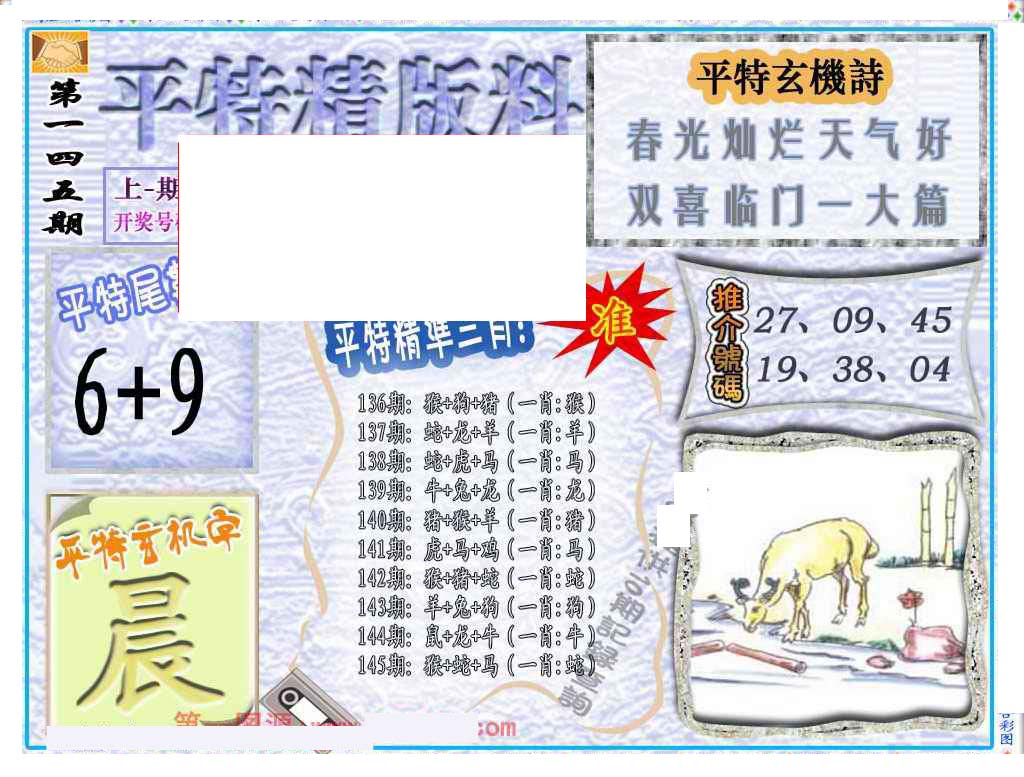 平特精版料
第一四五期
上-期
开奖号
平特玄機詩
春光灿烂天气好
双喜临门一大篇
平特尾
6+9
平特精準三肖!
准
推介號碼
27、09、45
19、38、04
136期: 猴+狗+猪(一肖:猴)
137期: 蛇+龙+羊(一肖:羊)
138期: 蛇+虎+马(一肖:马)
139期: 牛+兔+龙(一肖:龙)
140期: 猪+猴+羊(一肖:猪)
141期: 虎+马+鸡(一肖:马)
142期: 猴+猪+蛇(一肖:蛇)
143期: 羊+兔+狗(一肖:狗)
144期: 鼠+龙+牛(一肖:牛)
145期: 猴+蛇+马(一肖:蛇)
平特玄机字
晨
供3期記錄查詢
.com
彩图